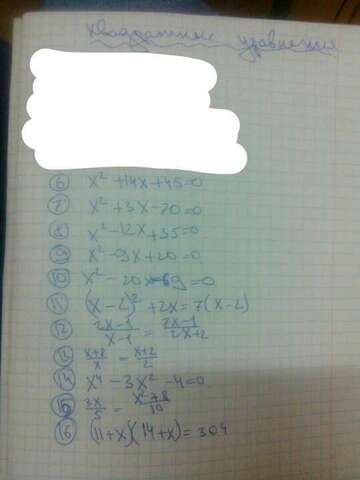 Квадратные уравнения
6 x² +14x+45=0
7 x² +3x-20=0
8 x² -12x+35=0
9 x² -9x+20=0
10 x² -20x-69=0
11 (x-2)² +2x=7(x-2)
12 2x-1/x-1 = 7x-1/2x+2
13 x+8/x = x+2/2
14 x⁴ -3x² -4=0
15 3x/5 = x²+8/10
16 (11+x)(14+x)=304